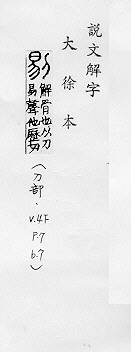 說文解字
大徐本
剔
解骨也从刀
易聲他歷切
(刀部. v.4下 P.7 b.7)